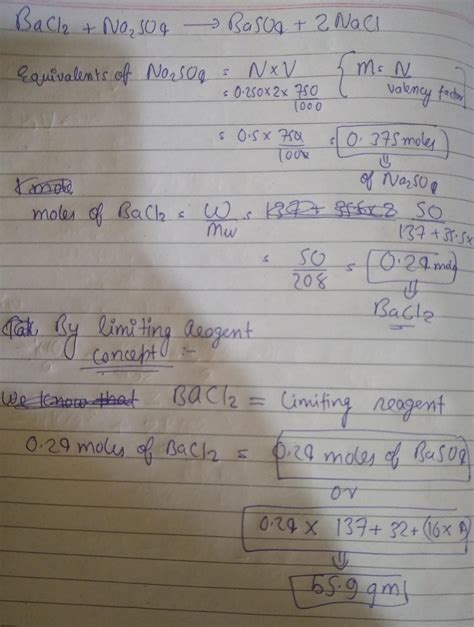 BaCl2 + Na2SO4 ⟶ BaSO4 + 2NaCl
Equivalents of Na2SO4 = N×V { m = N / valency factor
= 0.250×2× 750/1000
= 0.5 × 750/1000 = 0.375 moles
⇓
of Na2SO4
moles of BaCl2 = W/Mw = 50 / 137+35.5×
= 50/208 = 0.24 mol
⇓
BaCl2
By limiting reagent
concept :-
We know that BaCl2 = Limiting reagent
0.24 moles of BaCl2 = 0.24 moles of BaSO4
or
0.24 × 137 + 32 + (16×
⇓
55.9 gm